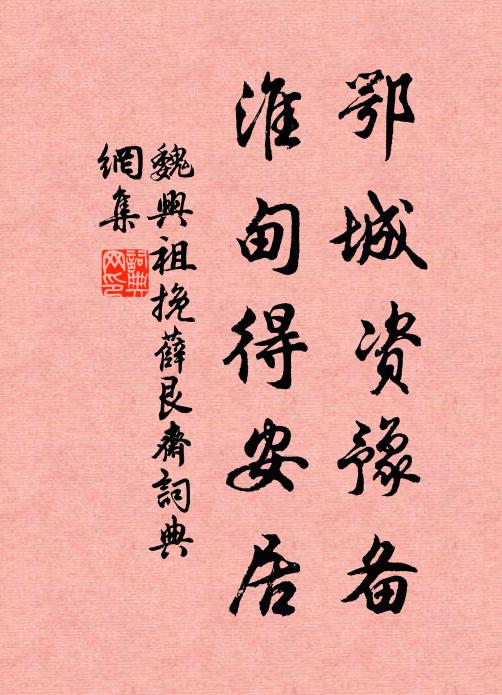 鄂城资豫备
淮甸得安居
魏興祖挽薛艮齋詞典
網集
詞典網印